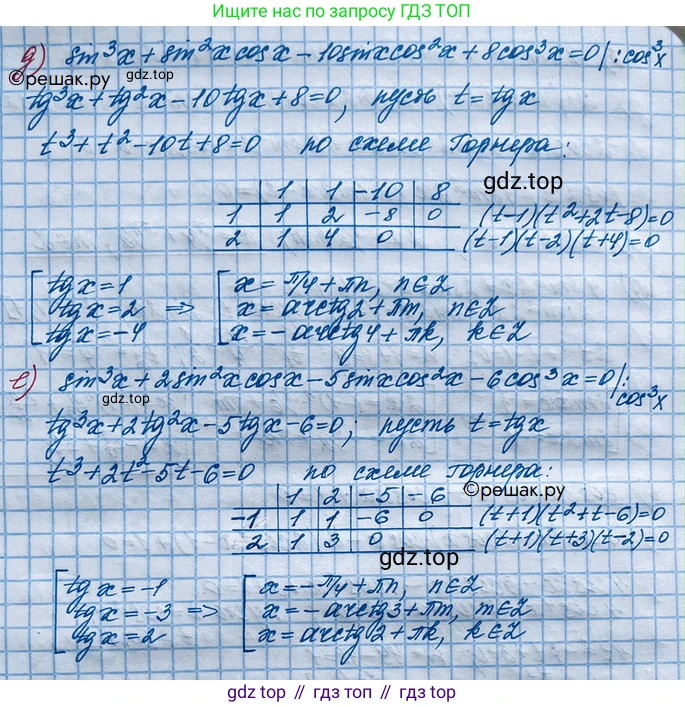 Ищите нас по запросу ГДЗ ТОП
д) sin³x + sin²x cosx − 10sinxcos²x + 8cos³x = 0 | : cos³x
©решак.ру
tg³x + tg²x − 10tgx + 8 = 0, пусть t = tgx
t³ + t² − 10t + 8 = 0 по схеме Горнера:
gdz.top
1 1 −10 8
1 1 2 −8 0 (t−1)(t²+2t−8)=0
2 1 4 0 (t−1)(t−2)(t+4)=0
tgx = 1 x = π/4 + πn, n∈Z
tgx = 2 => x = arctg2 + πm, n∈Z
tgx = −4 x = −arctg4 + πk, k∈Z
е) sin³x + 2sin²x cosx − 5sinxcos²x − 6cos³x = 0 | : cos³x
gdz.top
tg³x + 2tg²x − 5tgx − 6 = 0; пусть t = tgx
t³ + 2t² − 5t − 6 = 0 по схеме Горнера:
1 2 −5 −6
©решак.ру
−1 1 1 −6 0 (t+1)(t²+t−6)=0
2 1 3 0 (t+1)(t+3)(t−2)=0
gdz.top
tgx = −1 x = −π/4 + πn, n∈Z
tgx = −3 => x = −arctg3 + πm, m∈Z
tgx = 2 x = arctg2 + πk, k∈Z
gdz.top // гдз топ // gdz.top